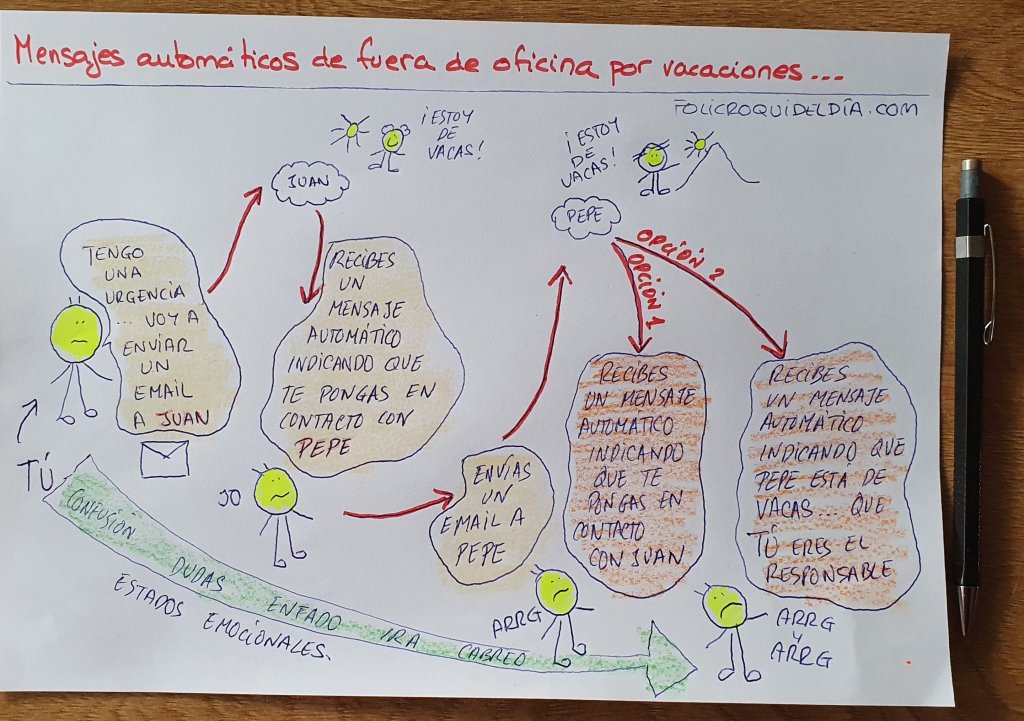 Mensajes automáticos de fuera de oficina por vacaciones...
FOLICROQUIDELDÍA.COM
¡ESTOY
DE
VACAS!
JUAN
TENGO
UNA
URGENCIA
... VOY A
ENVIAR
UN
EMAIL
A JUAN
TÚ
RECIBES
UN
MENSAJE
AUTOMÁTICO
INDICANDO QUE
TE PONGAS EN
CONTACTO CON
PEPE
JO
ENVÍAS
UN
EMAIL A
PEPE
¡ESTOY
DE
VACAS!
PEPE
OPCIÓN 1
OPCIÓN 2
RECIBES
UN MENSAJE
AUTOMÁTICO
INDICANDO
QUE TE
PONGAS EN
CONTACTO
CON JUAN
ARRG
RECIBES
UN MENSAJE
AUTOMÁTICO
INDICANDO QUE
PEPE ESTÁ DE
VACAS... QUE
TÚ ERES EL
RESPONSABLE
ARRG
Y
ARRG
CONFUSIÓN DUDAS ENFADO IRA CABREO
ESTADOS EMOCIONALES.